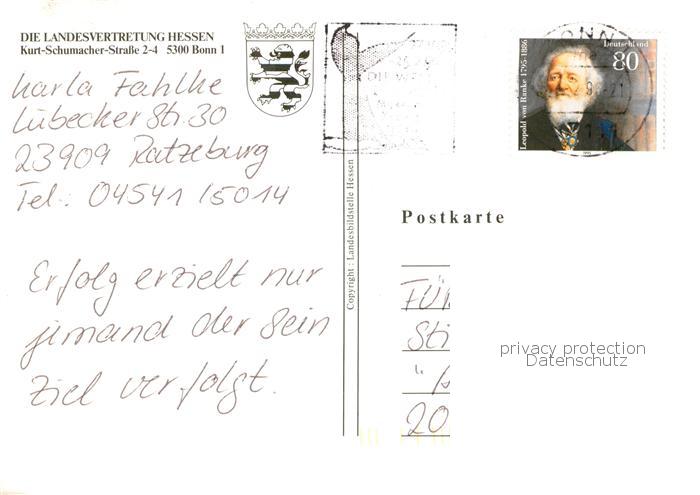 DIE LANDESVERTRETUNG HESSEN
Kurt-Schumacher-Straße 2-4 5300 Bonn 1
Karla Fahlke
Lübecker Str. 30
23909 Ratzeburg
Tel.: 04541 15014
Erfolg erzielt nur
jemand der sein
Ziel verfolgt.
Copyright : Landesbildstelle Hessen
Deutschland
80
Leopold von Ranke 1795-1886
Postkarte
FÜ
Sti
20
privacy protection
Datenschutz